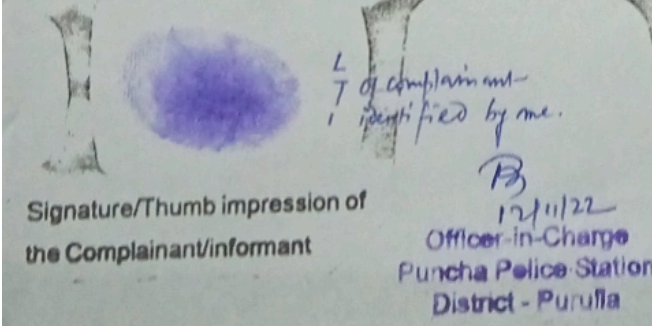 L
T of complainant
I identified by me.
12/11/22
Signature/Thumb impression of
the Complainant/informant
Officer-in-Charge
Puncha Police Station
District - Purulia